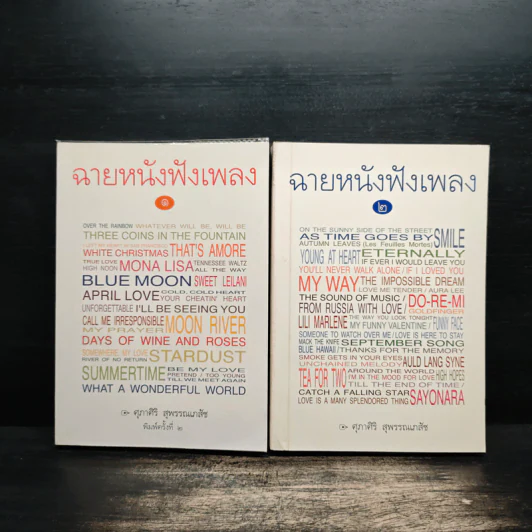 ฉายหนังฟังเพลง
๑
OVER THE RAINBOW WHATEVER WILL BE, WILL BE
THREE COINS IN THE FOUNTAIN
WHITE CHRISTMAS THAT'S AMORE
TRUE LOVE
HIGH NOON MONA LISA TENNESSEE WALTZ
ALL THE WAY
BLUE MOON SWEET LEILANI
APRIL LOVE COLD, COLD HEART
YOUR CHEATIN' HEART
UNFORGETTABLE I'LL BE SEEING YOU
CALL ME IRRESPONSIBLE MOON RIVER
MY PRAYER
DAYS OF WINE AND ROSES
SOMEWHERE, MY LOVE STARDUST
RIVER OF NO RETURN
SUMMERTIME BE MY LOVE
PRETEND / TOO YOUNG
TILL WE MEET AGAIN
WHAT A WONDERFUL WORLD
ศุภาศิริ สุพรรณเภสัช
พิมพ์ครั้งที่ ๒
ฉายหนังฟังเพลง
๒
ON THE SUNNY SIDE OF THE STREET
AS TIME GOES BY SMILE
AUTUMN LEAVES (Les Feuilles Mortes)
YOUNG AT HEART ETERNALLY
IF EVER I WOULD LEAVE YOU
YOU'LL NEVER WALK ALONE / IF I LOVED YOU
MY WAY THE IMPOSSIBLE DREAM
LOVE ME TENDER / AURA LEE
THE SOUND OF MUSIC / DO-RE-MI
FROM RUSSIA WITH LOVE / GOLDFINGER
LILI MARLENE THE WAY YOU LOOK TONIGHT
MY FUNNY VALENTINE / FUNNY FACE
SOMEONE TO WATCH OVER ME / LOVE IS HERE TO STAY
MACK THE KNIFE SEPTEMBER SONG
BLUE HAWAII / THANKS FOR THE MEMORY
SMOKE GETS IN YOUR EYES AULD LANG SYNE
UNCHAINED MELODY
TEA FOR TWO AROUND THE WORLD HIGH HOPES
I'M IN THE MOOD FOR LOVE
TILL THE END OF TIME /
CATCH A FALLING STAR SAYONARA
LOVE IS A MANY SPLENDORED THING
ศุภาศิริ สุพรรณเภสัช